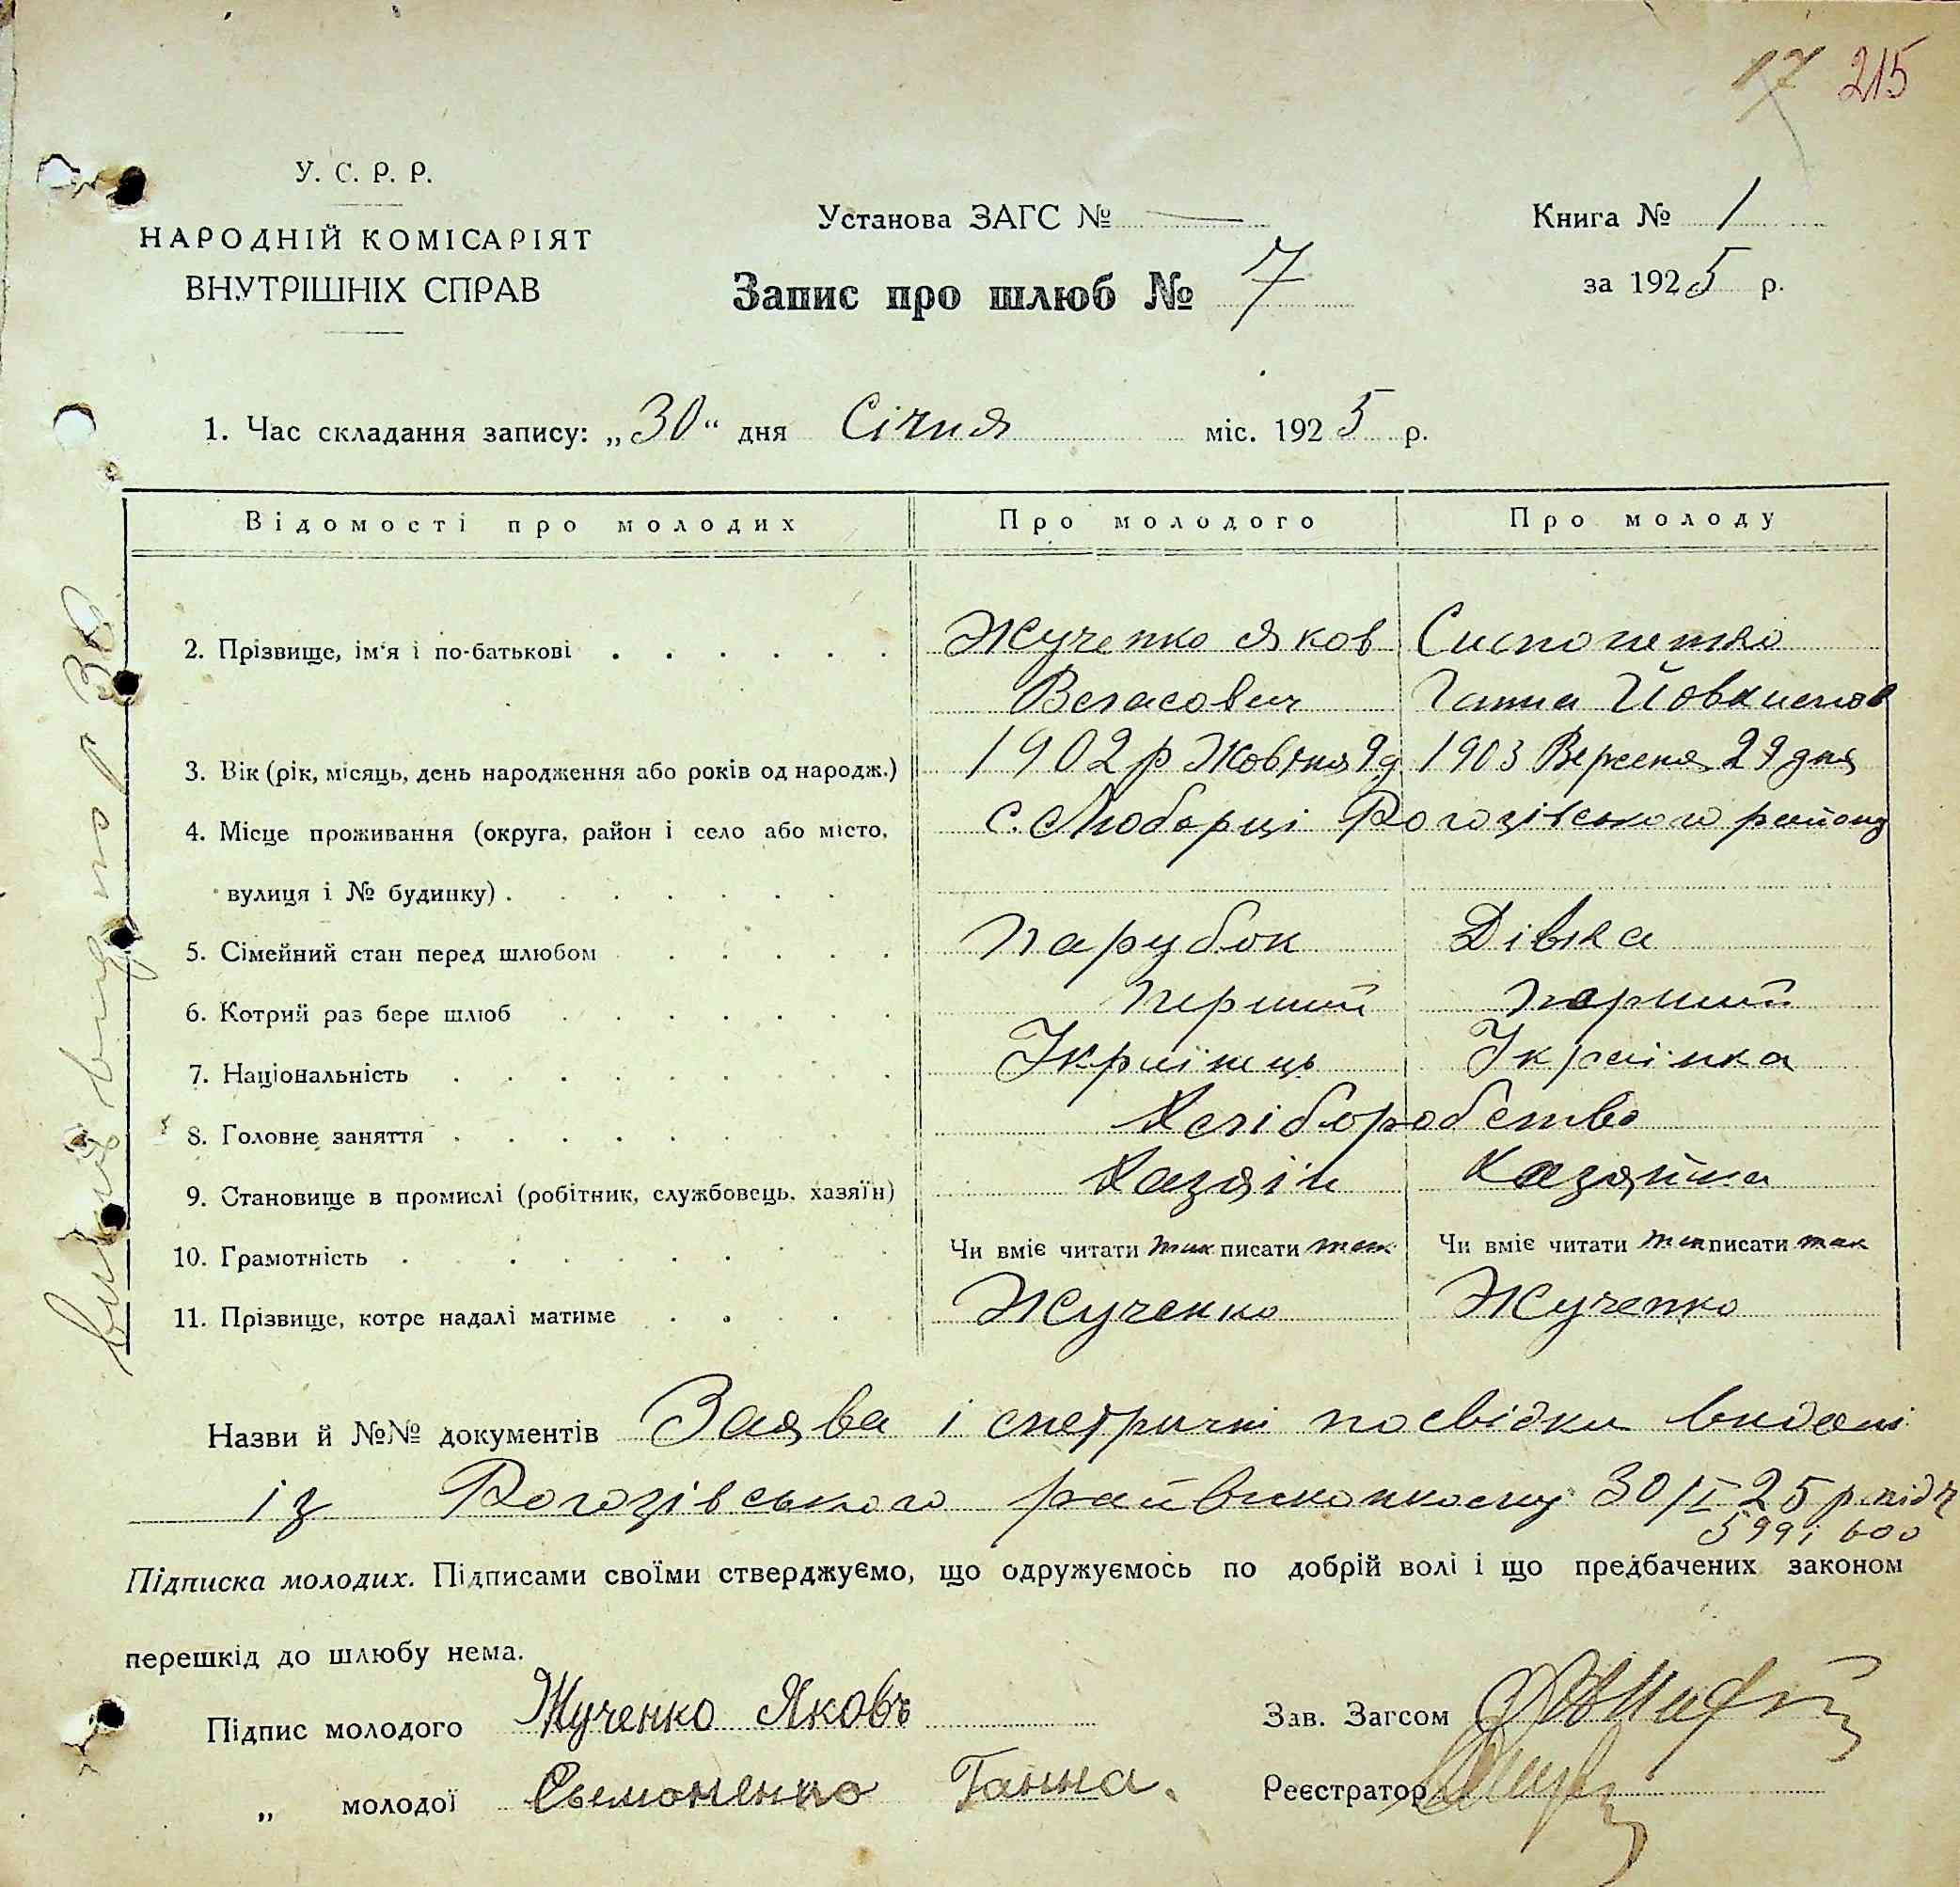 17 215
У. С. Р. Р.
НАРОДНІЙ КОМІСАРІЯТ
ВНУТРІШНІХ СПРАВ
Установа ЗАГС № —
Запис про шлюб № 7
Книга № 1
за 1925 р.
1. Час складання запису: „30“ дня Січня міс. 1925 р.
Відомості про молодих Про молодого Про молоду
2. Прізвище, ім'я і по-батькові Жученко Яков Симоненко
Власович Ганна Йовхимов
3. Вік (рік, місяць, день народження або років од народж.) 1902 р Жовтня 9 д 1903 Вересня 29 дня
4. Місце проживання (округа, район і село або місто, с. Любарці Рогозівського району
вулиця і № будинку)
5. Сімейний стан перед шлюбом Парубок Дівка
6. Котрий раз бере шлюб перший перший
7. Національність Українець Українка
8. Головне заняття Хліборобство
9. Становище в промислі (робітник, службовець, хазяїн) Хазяін Хазяйка
10. Грамотність Чи вміє читати так писати так Чи вміє читати так писати так
11. Прізвище, котре надалі матиме Жученко Жученко
Назви й №№ документів Заява і метричні посвідки видані
із Рогозівського райвиконкому 30/I 25 р. під №
599 і 600
Підписка молодих. Підписами своїми стверджуємо, що одружуємось по добрій волі і що предбачених законом
перешкід до шлюбу нема.
Підпис молодого Жученко Яковъ
Зав. Загсом
„ молодої Сьемоненко Ганна.
Реєстратор